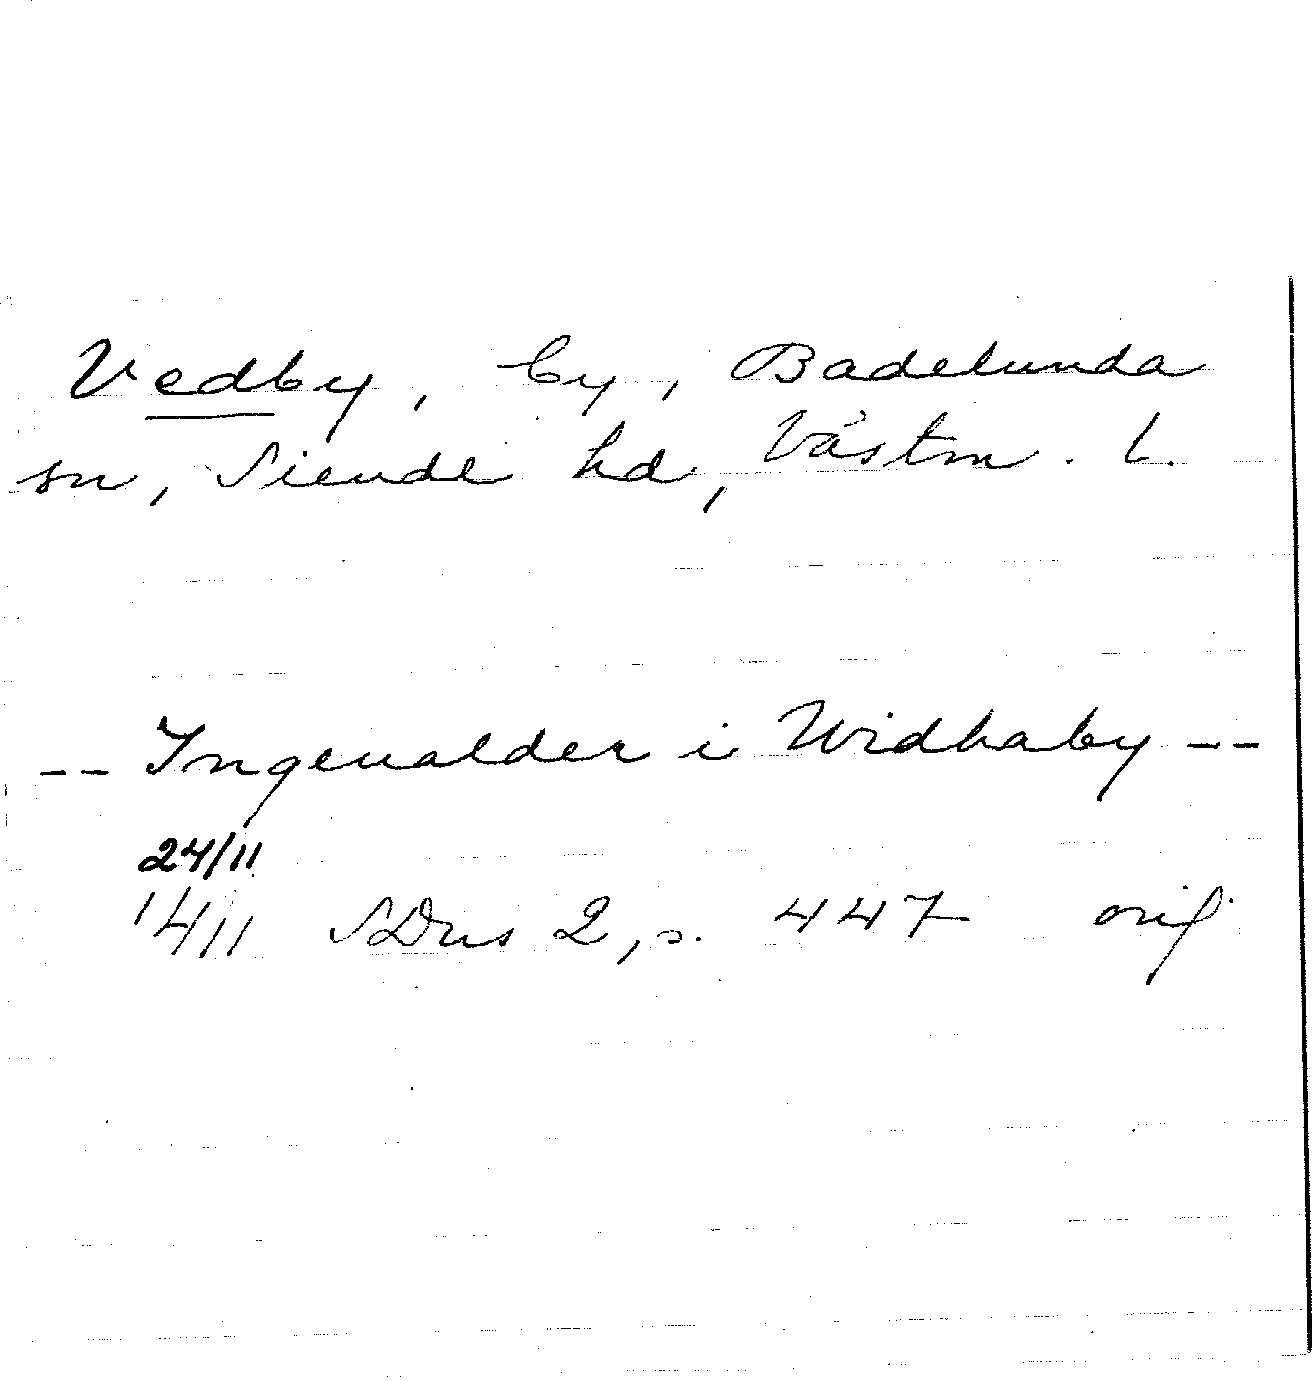 Vedby, by, Badelunda
sn, Siende hd, Västm. l.
-- Ingeualder i Widhaby --
24/11
1411 SDns 2, s. 447 orig.